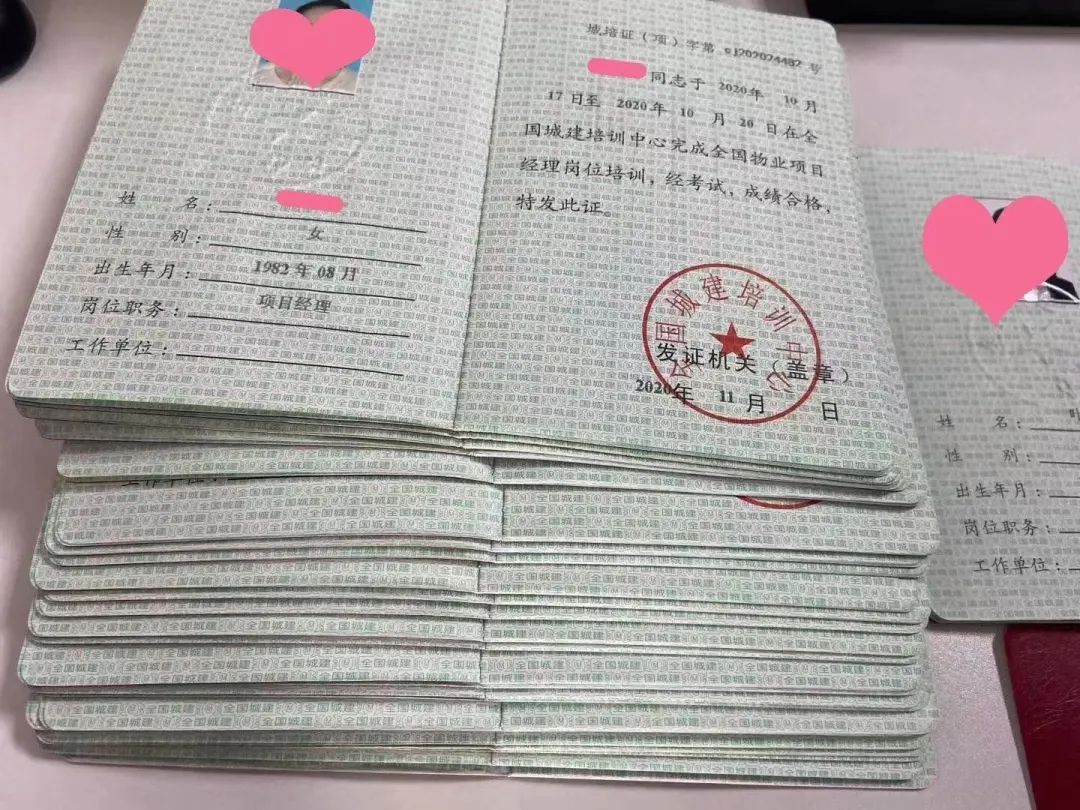 姓 名：
性 别： 女
出生年月： 1982年08月
岗位职务： 项目经理
工作单位：
城培证（项）字第 cj202024482 号
同志于 2020年 10月
17日至 2020年 10 月 20 日在全
国城建培训中心完成全国物业项目
经理岗位培训，经考试，成绩合格，
特发此证。
全国城建培训中心
发证机关（盖章）
2020年 11月 日
工作单位：
姓 名：
性 别：
出生年月：
岗位职务：
工作单位：